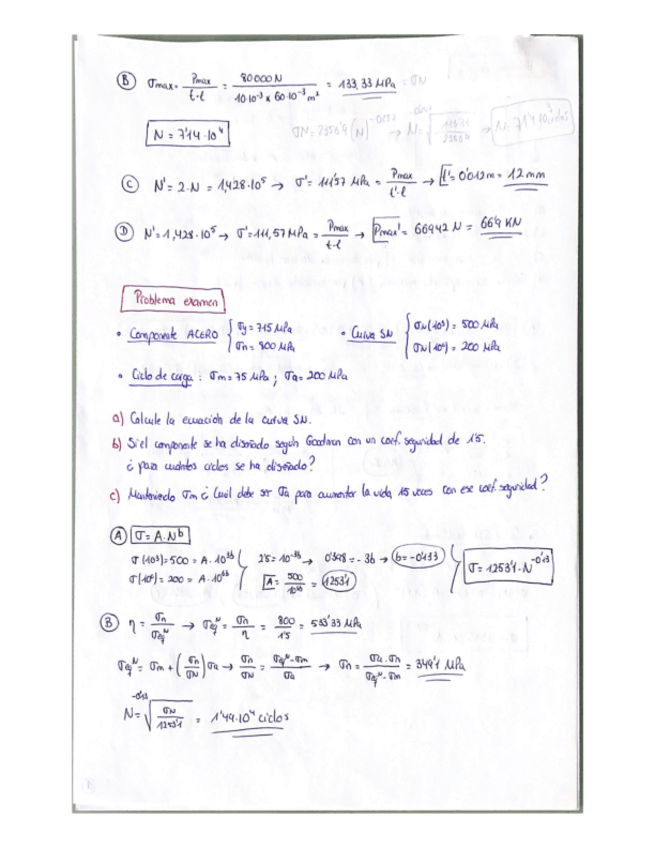 B σmax = Pmax / t·l = 80000N / 10·10⁻³ x 60·10⁻³ m² = 133,33 MPa = σN
N = 7'14·10⁴
C N' = 2·N = 1'428·10⁵ → σ' = 111'57 MPa = Pmax / t'·l → t' = 0'012m = 12mm
D N' = 1,428·10⁵ → σ' = 111,57 MPa = Pmax / t·l → Pmax' = 66942 N = 66'9 KN
Problema examen
• Componente ACERO { σy = 715 MPa
σn = 800 MPa
• Curva SN { σN(10³) = 500 MPa
σN(10⁶) = 200 MPa
• Ciclo de carga : σm = 75 MPa ; σa = 200 MPa
a) Calcule la ecuación de la curva SN.
b) Si el componente se ha diseñado según Goodman con un coef. seguridad de 1'5.
¿ para cuántos ciclos se ha diseñado?
c) Manteniendo σm ¿ Cuál debe ser σa para aumentar la vida 1'5 veces con ese coef. seguridad?
A σ = A·Nᵇ
σ(10³) = 500 = A·10³ᵇ
σ(10⁶) = 200 = A·10⁶ᵇ
2'5 = 10⁻³ᵇ → 0'398 = -3b → b = -0'133
A = 500 / 10³ᵇ = 1253'1
σ = 1253'1·N⁻⁰'¹³
B η = σn / σeqᴺ → σeqᴺ = σn / η = 800 / 1'5 = 533'33 MPa
σeqᴺ = σm + (σn / σN) σa → σn / σN = σeqᴺ - σm / σa → σn = σa·σn / σeqᴺ - σm = 349'1 MPa
N = ⁻⁰'¹³√(σN / 1253'1) = 1'49·10⁴ ciclos